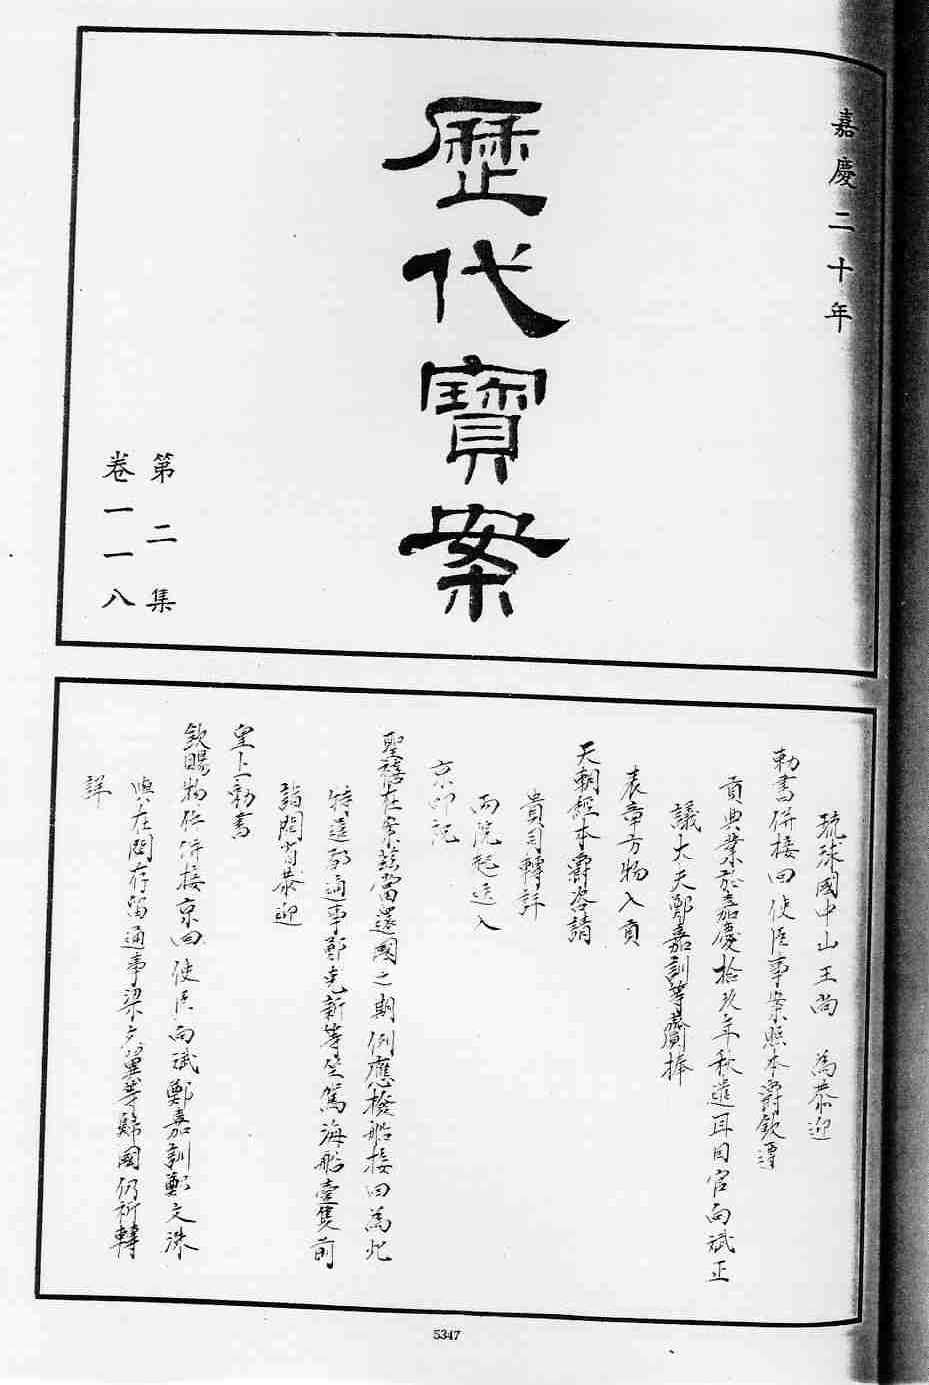 嘉慶二十年
歷代寶案
第二集
卷一一八
琉球國中山王尚　為恭迎
勅書併接回使臣事案照本爵欽遵
貢典業於嘉慶拾玖年秋遣耳目官向斌正
議大夫鄭嘉訓等齎捧
表章方物入貢
天朝經本爵咨請
貴司轉詳
兩院起送入
京叩祝
聖禧在案茲當還國之期例應撥船接回為此
特遣都通事鄭克新等坐駕海船壹隻前
詣閩省恭迎
皇上勅書
欽賜物件併接京回使臣向斌鄭嘉訓鄭文洙
與在閩存留通事梁文翼等歸國仍祈轉
詳
5347